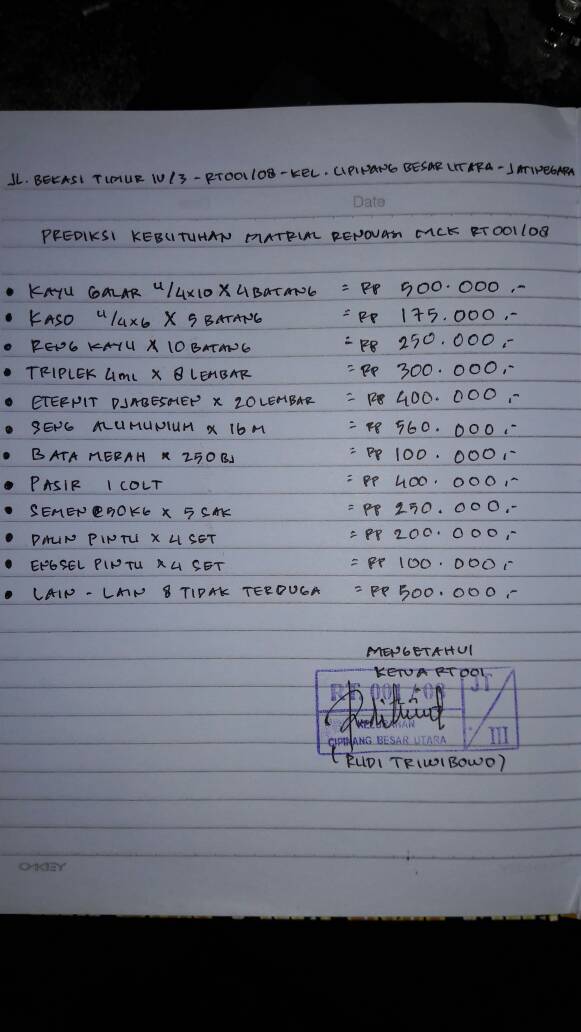 JL. BEKASI TIMUR IV/3 - RT001/08 - KEL. CIPINANG BESAR UTARA - JATINEGARA
Date
PREDIKSI KEBUTUHAN MATRIAL RENOVASI MCK RT 001/08
• KAYU GALAR 4/4x10 X 4 BATANG = Rp 500.000,-
• KASO 4/4x6 X 5 BATANG = Rp 175.000,-
• RENG KAYU X 10 BATANG = Rp 250.000,-
• TRIPLEK 4ml X 8 LEMBAR = Rp 300.000,-
• ETERNIT DJABESMEN X 20 LEMBAR = Rp 400.000,-
• SENG ALUMUNIUM X 16 M = Rp 560.000,-
• BATA MERAH X 250 BJ = Rp 100.000,-
• PASIR 1 COLT = Rp 400.000,-
• SEMEN @50KG X 5 SAK = Rp 250.000,-
• DAUN PINTU X 4 SET = Rp 200.000,-
• ENGSEL PINTU X 4 SET = Rp 100.000,-
• LAIN - LAIN & TIDAK TERDUGA = Rp 500.000,-
MENGETAHUI
KETUA RT 001
RT. 001 / 08 JT
KELURAHAN
CIPINANG BESAR UTARA III
(RUDI TRIWIBOWO)
O-KEY